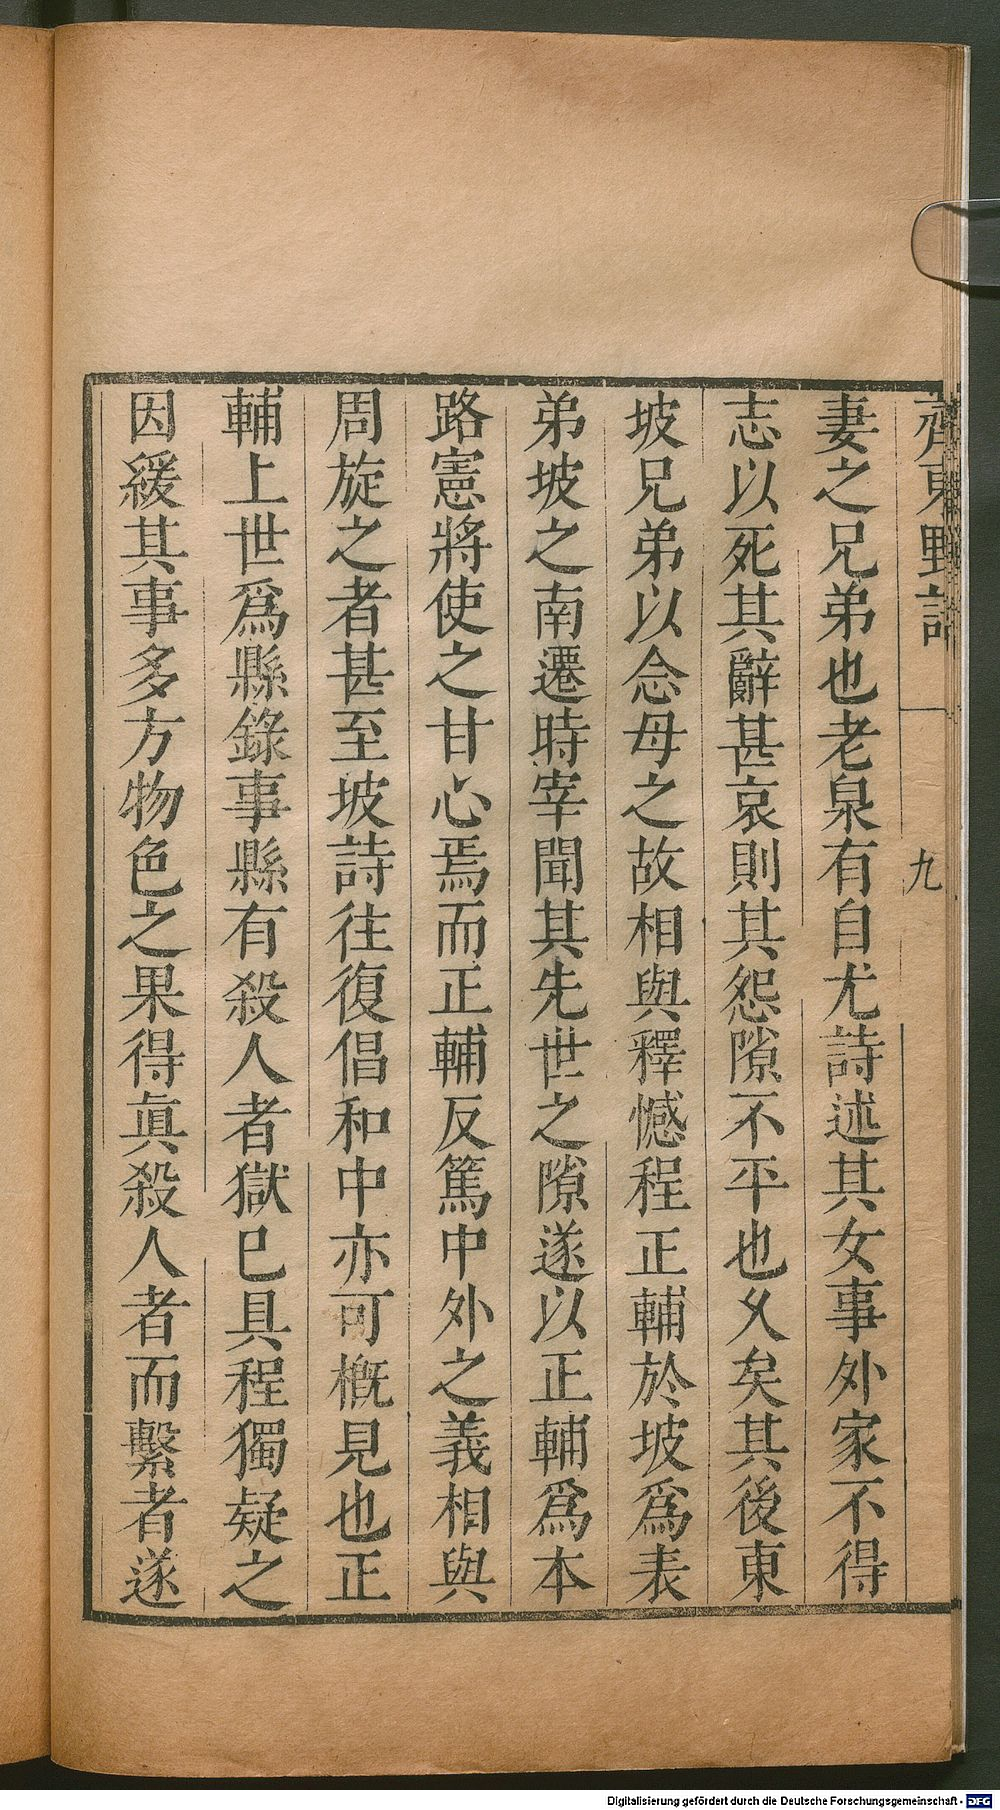 齊東野語
九
妻之兄弟也老泉有自尤詩述其女事外家不得
志以死其辭甚哀則其怨隙不平也乆矣其後東
坡兄弟以念母之故相與釋憾程正輔於坡爲表
弟坡之南遷時宰聞其先世之隙遂以正輔爲本
路憲將使之甘心焉而正輔反篤中外之義相與
周旋之者甚至坡詩往復倡和中亦可概見也正
輔上世爲縣錄事縣有殺人者獄已具程獨疑之
因緩其事多方物色之果得眞殺人者而繫者遂
Digitalisierung gefördert durch die Deutsche Forschungsgemeinschaft - DFG